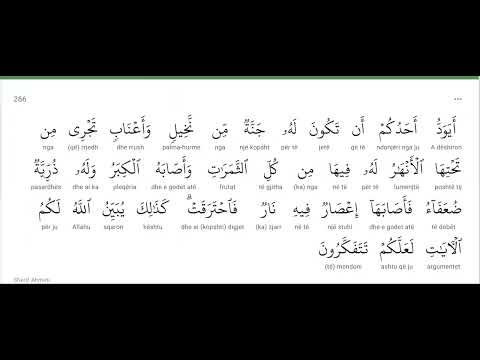 266
أَيَوَدُّ أَحَدُكُمْ أَن تَكُونَ لَهُۥ جَنَّةٌ مِّن نَّخِيلٍ وَأَعْنَابٍ تَجْرِى مِن
A dëshiron ndonjëri nga ju që të jetë për të një kopsht nga palma-hurme dhe rrush (që) rrjedh nga
تَحْتِهَا الْأَنْهَـٰرُ لَهُۥ فِيهَا مِن كُلِّ الثَّمَرَٰتِ وَأَصَابَهُ الْكِبَرُ وَلَهُۥ ذُرِّيَّةٌ
poshtë tij lumenjtë për të në të (ka) nga të gjitha frutat dhe e godet atë pleqëria dhe ai ka pasardhës
ضُعَفَآءُ فَأَصَابَهَآ إِعْصَارٌ فِيهِ نَارٌ فَٱحْتَرَقَتْ ۗ كَذَٰلِكَ يُبَيِّنُ اللَّهُ لَكُمُ
të dobët dhe e godet atë një stuhi në të (ka) zjarr dhe ai (kopshti) digjet kështu sqaron Allahu për ju
الْـَٔايَـٰتِ لَعَلَّكُمْ تَتَفَكَّرُونَ
argumentet ashtu që ju (të) mendoni
Sherif Ahmeti